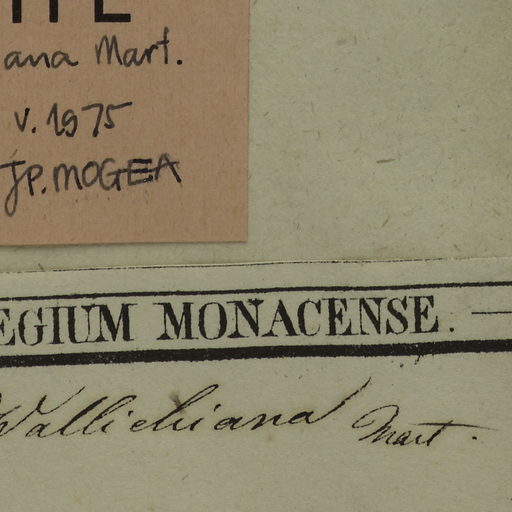 ana Mart.
v. 1975
JP. MOGEA
EGIUM MONACENSE.
Wallichiana Mart.